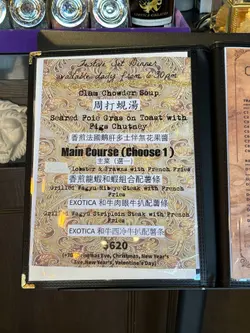 Festive Set Dinner
available daily from 6:30pm
Clam Chowder Soup
周打蜆湯
Seared Foie Gras on Toast with
Figs Chutney
香煎法國鵝肝多士伴無花果醬
Main Course (Choose 1)
主菜（選一）
Lobster & Prawns with French Fries
香煎龍蝦和蝦組合配薯條
Grilled Wagyu Ribeye Steak with French
Fries
EXOTICA 和牛肉眼牛扒配薯條
Grilled Wagyu Striploin Steak with French
Fries
EXOTICA 和牛西冷牛扒配薯条
$620
Christmas Eve, Christmas, New Year's
Eve, New Year's, Valentine's Day)